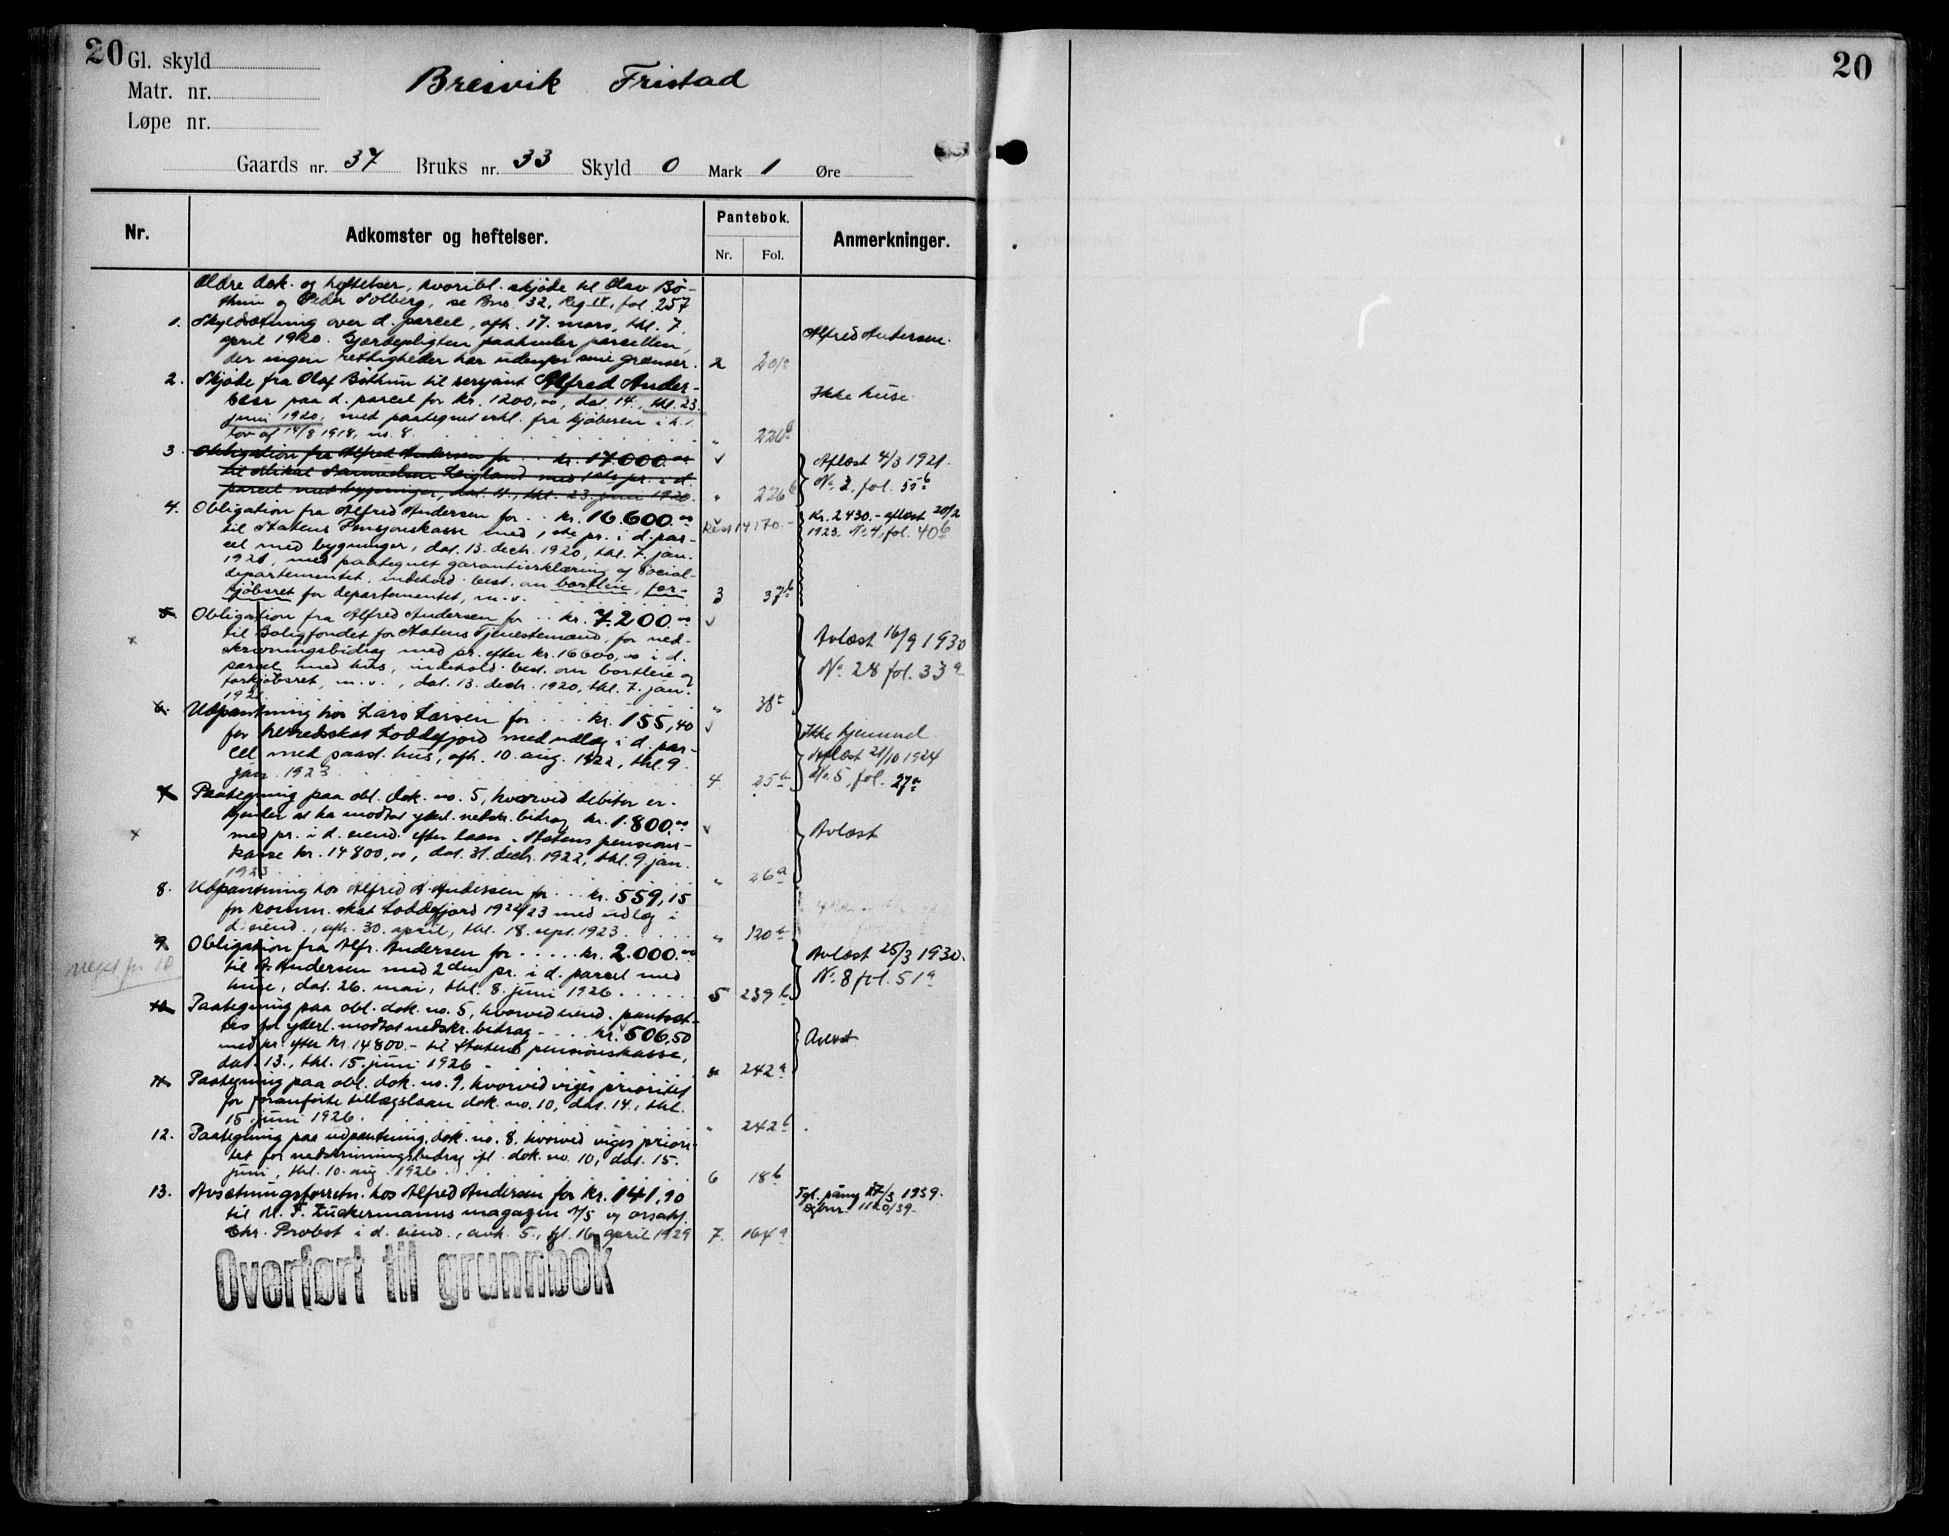 20 Gl. skyld
Matr. nr.
Løpe nr.
Breivik Fristad
Gaards nr. 37 Bruks nr. 33 Skyld 0 Mark 1 Øre
Nr. Adkomster og heftelser. Pantebok. Anmerkninger.
Nr. Fol.
Ældre dok. og heftelser, hvoribl. skjøde til Olav Bø-
thun og Peder Solberg, se Bno. 32, Reg. II, fol. 257
1. Skyldsætning over d. parcel, afh. 17. mars, thl. 7.
april 1920. Gjærdepligten paahviler parcellen,
der ingen rettigheder har utenfor sine grænser. 2 201a
Alfred Andersen.
2. Skjøde fra Olaf Bøthun til sersjant Alfred Ander-
sen paa d. parcel for kr. 1200,00, dat. 14., thl. 23.
juni 1920, med paategnet erkl. fra kjøberen i h. t.
lov af 14/8 1918, no. 8. " 226a
Ikke huse.
3. Obligation fra Alfred Andersen for kr. 17000.00
til Mikal Samuelsen Leigland med 1ste pr. i d.
parcel med bygninger, dat. 11., thl. 23. juni 1920. " 226b
Aflæst 4/3 1921.
No. 3, fol. 55b
4. Obligation fra Alfred Andersen for kr. 16.600.00
til Statens Pensjonskasse med 1ste pr. i d. par-
cel med bygninger, dat. 13. decb. 1920, thl. 7. jan.
1921, med paategnet garantierklæring af Social-
departementet, indehold. best. om bortleie, for-
kjøbsret for departementet, m.v. 3 37b
Rest 14170.-
Kr. 2430.- aflæst 20/2
1923. No. 4, fol. 40b
5. Obligation fra Alfred Andersen for kr. 7.200.00
til Boligfondet for Statens Tjenestemænd, for ned-
skrivningsbidrag med pr. efter kr. 16600,00 i d.
parcel med hus, indehold. best. om bortleie og
forkjøbsret, m.v., dat. 13. decb. 1920, thl. 7. jan.
1921. " 38a
Avlæst 16/9 1930
No. 28 fol. 33a
6. Udpantning hos Lars Larsen for kr. 155,40
for herredsskat Loddefjord med udlæg i d. par-
cel med paast. hus, afh. 10. aug. 1922, thl. 9.
jan. 1923. 4 25b
Ikke hjemmel.
Aflæst 21/10 1924
No. 5, fol. 27a
7. Paategning paa obl. dok. no. 5, hvorved debitor er-
kjender at ha modtat yderl. nedskr. bidrag kr. 1.800.00
med pr. i d. eiend. efter laan i Statens pensions-
kasse kr. 14800,00, dat. 31. decb. 1922, thl. 9. jan.
1923 " 26a
Avlæst
8. Udpantning hos Alfred A. Andersen for kr. 559,15
for komm. skat Loddefjord 1922/23 med udlæg i
d. eiend., afh. 30. april, thl. 18. sept. 1923. " 120b
9. Obligation fra Alfr. Andersen for kr. 2.000.00
til A. Andersen med 2den pr. i d. parcel med
huse, dat. 26. mai, thl. 8. juni 1926. 5 239b
Veket for 10
Avlæst 25/3 1930.
No. 8 fol. 51a
10. Paategning paa obl. dok. no. 5, hvorved eiend. pantsæt-
tes for yderl. modtat nedskr. bidrag kr. 506,50
med pr. efter kr. 14800.- til Statens pensionskasse,
dat. 13., thl. 15. juni 1926 " 242a
Avlæst
11. Paategning paa obl. dok. no. 9, hvorved viges prioritet
for foranførte tillægslaan dok. no. 10, dat. 14., thl.
15. juni 1926. " 242b
12. Paategning paa udpantning, dok. no. 8, hvorved viges priori-
tet for nedskrivningsbidrag ifl. dok. no. 10, dat. 15.
juni, thl. 10. aug. 1926. 6 18b
13. Avsætningsforretn. hos Alfred Andersen for kr. 141,90
til M. F. Zuckermanns magazin A/S og orsakf.
Chr. Probst i d. eiend., avh. 5., tgl. 16. april 1929 7. 164a
Tgl. påny 27/3 1939.
Dgbnr. 1120/39.
Overført til grunnbok
20